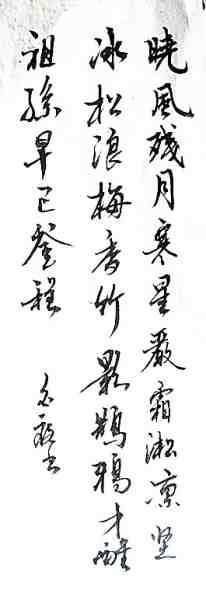 晓风残月寒星严霜淞凉坚
冰松浪梅香竹影鹊鸦才醒
祖孙早已登程